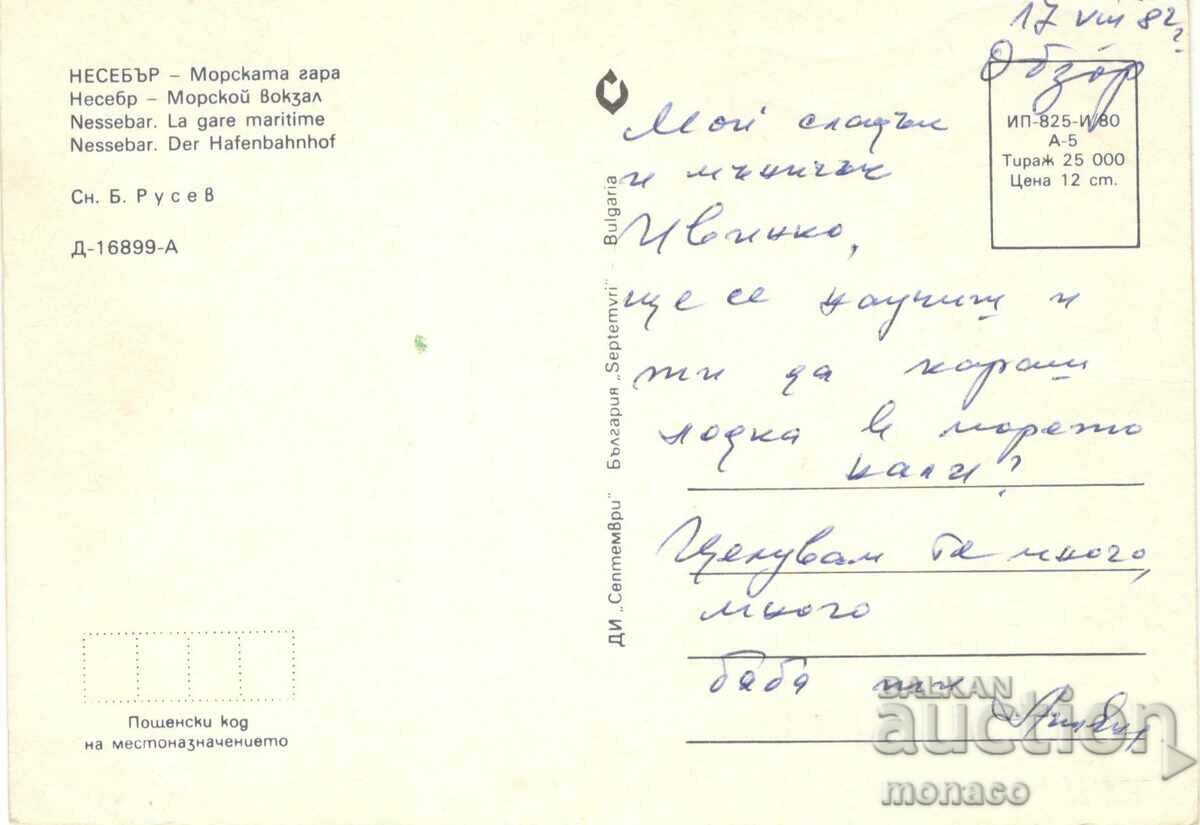 НЕСЕБЪР – Морската гара
Несебр – Морской вокзал
Nessebar. La gare maritime
Nessebar. Der Hafenbahnhof
Сн. Б. Русев
Д-16899-А
Пощенски код
на местоназначението
ДИ „Септември" България „Septemvri" - Bulgaria
17 VIII 82 г
Обзор
ИП-825-И/80
А-5
Тираж 25 000
Цена 12 ст.
Мой сладък
и мъничък
Ивчинко,
ще се научиш и
ти да караш
лодка в морето
нали?
Целувам те много,
много
баба ти
BALKAN
auction
monaco